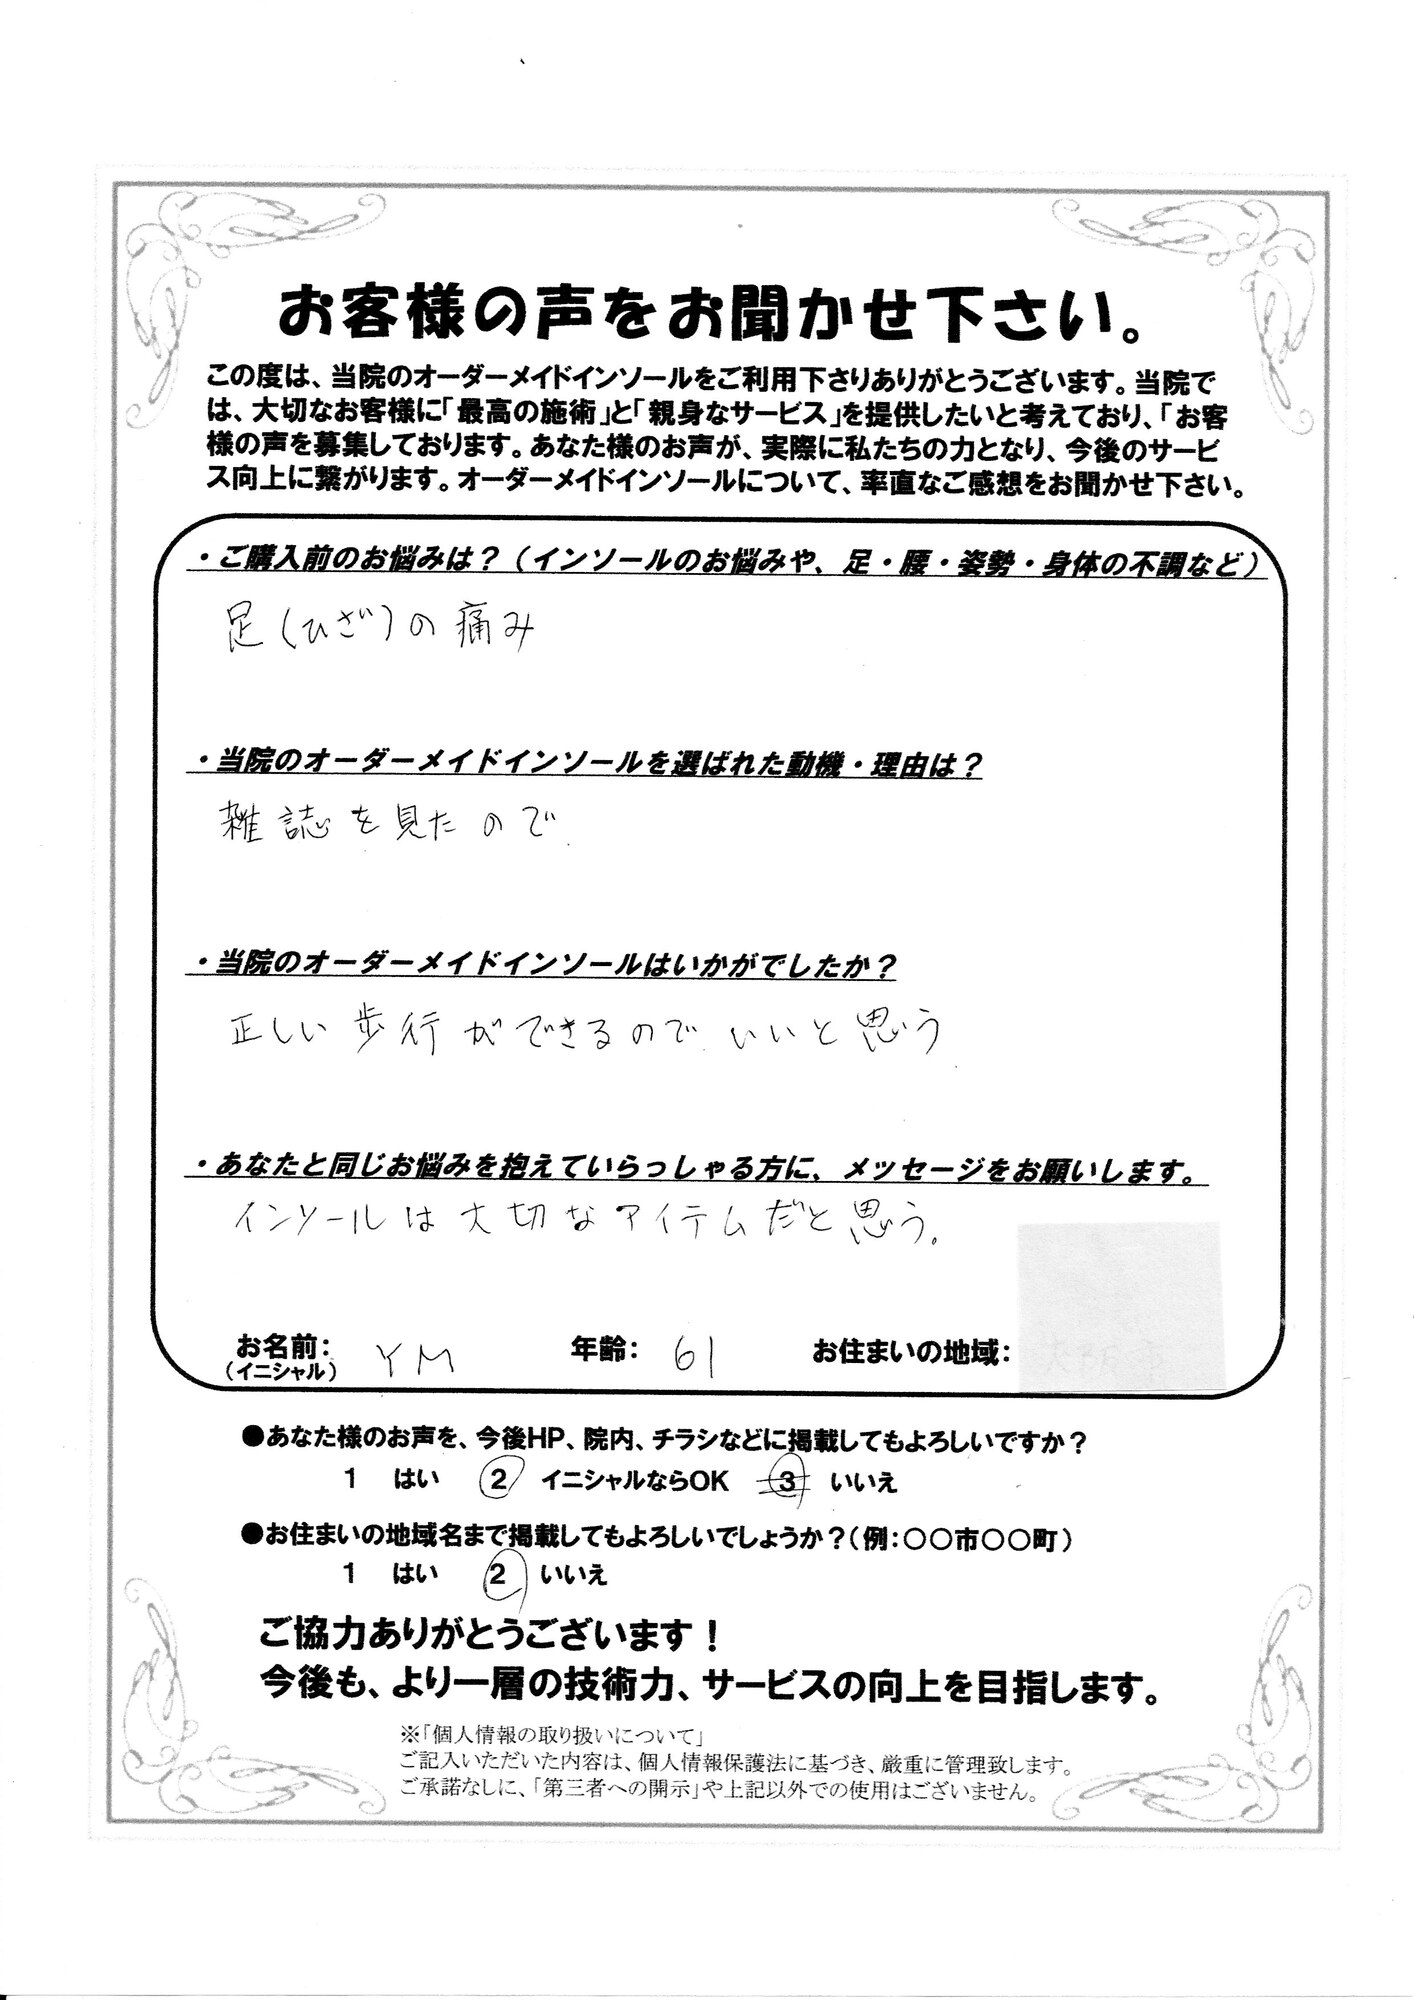 お客様の声をお聞かせ下さい。
この度は、当院のオーダーメイドインソールをご利用下さりありがとうございます。当院で
は、大切なお客様に「最高の施術」と「親身なサービス」を提供したいと考えており、「お客
様の声を募集しております。あなた様のお声が、実際に私たちの力となり、今後のサービ
ス向上に繋がります。オーダーメイドインソールについて、率直なご感想をお聞かせ下さい。
・ご購入前のお悩みは？（インソールのお悩みや、足・腰・姿勢・身体の不調など）
足(ひざ)の痛み
・当院のオーダーメイドインソールを選ばれた動機・理由は？
雑誌を見たので
・当院のオーダーメイドインソールはいかがでしたか？
正しい歩行ができるのでいいと思う
・あなたと同じお悩みを抱えていらっしゃる方に、メッセージをお願いします。
インソールは大切なアイテムだと思う。
お名前： YM 年齢： 61 お住まいの地域：
（イニシャル）
●あなた様のお声を、今後HP、院内、チラシなどに掲載してもよろしいですか？
1 はい 2 イニシャルならOK 3 いいえ
●お住まいの地域名まで掲載してもよろしいでしょうか？（例：〇〇市〇〇町）
1 はい 2 いいえ
ご協力ありがとうございます！
今後も、より一層の技術力、サービスの向上を目指します。
※「個人情報の取り扱いについて」
ご記入いただいた内容は、個人情報保護法に基づき、厳重に管理致します。
ご承諾なしに、「第三者への開示」や上記以外での使用はございません。